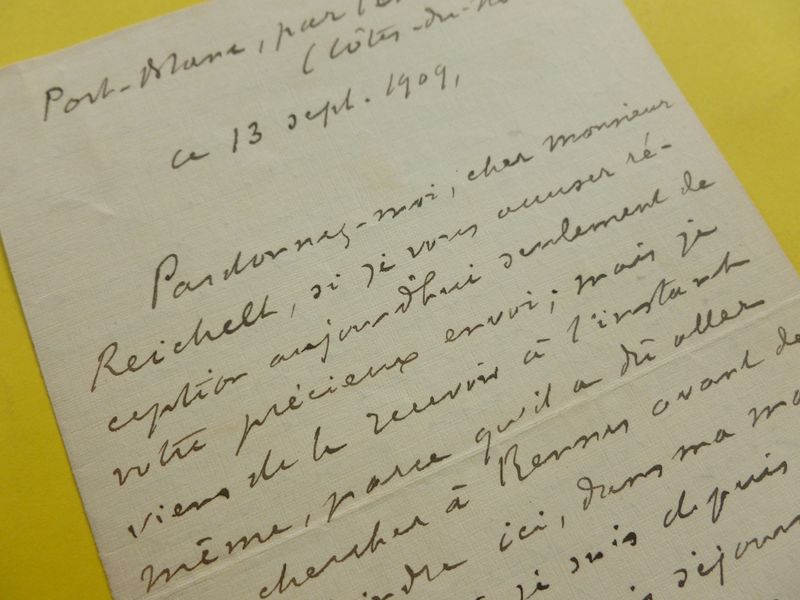 Port-Blanc, par
(Côtes-du-No
ce 13 sept. 1909,
Pardonnez-moi, cher monsieur
Reichelt, si je vous accuser ré-
ception aujourd'hui seulement de
votre précieux envoi; mais je
viens de le recevoir à l'instant
même, parce qu'il a dû aller
chercher à Rennes avant de
ici, dans ma ma
je suis depuis
séjour